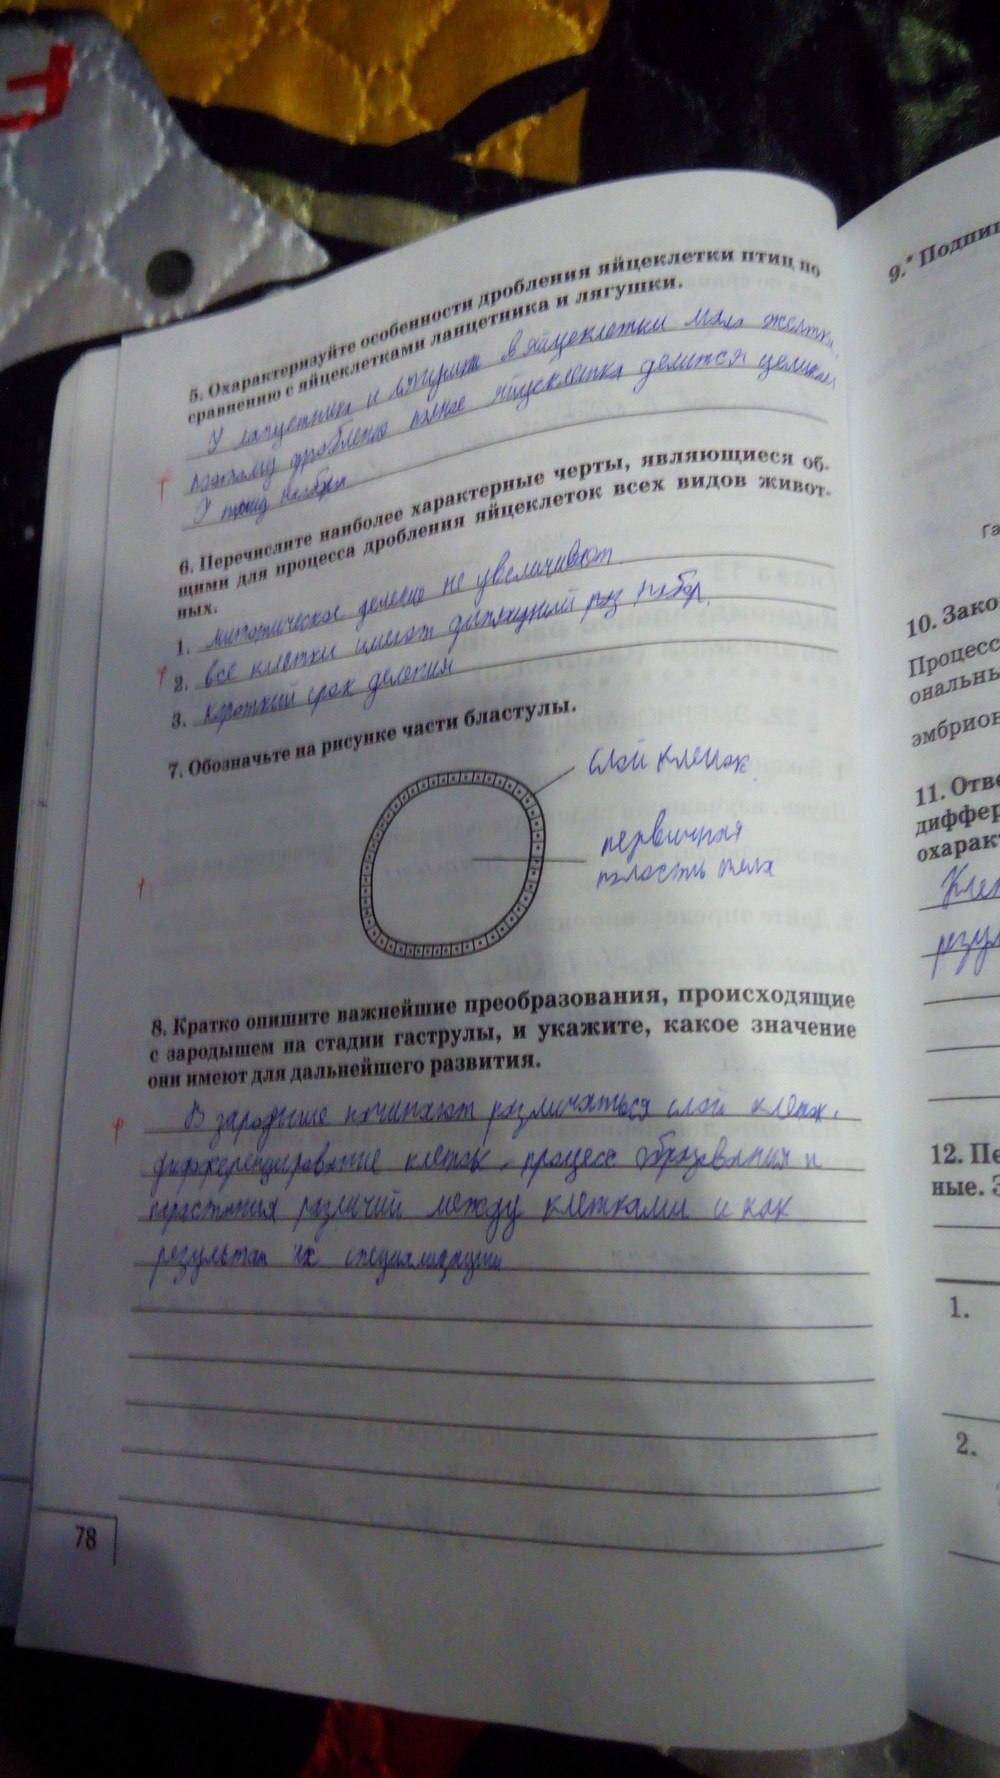 5. Охарактеризуйте особенности дробления яйцеклетки птиц по
сравнению с яйцеклетками ланцетника и лягушки.
У ланцетника и лягушки в яйцеклетки мало желтка,
поэтому дробление полное яйцеклетка делится целиком
У птиц
6. Перечислите наиболее характерные черты, являющиеся об-
щими для процесса дробления яйцеклеток всех видов живот-
ных.
1. митотическое деление не увеличивают
2. все клетки имеют диплоидный набор.
3. короткий срок деления
7. Обозначьте на рисунке части бластулы.
слой клеток
первичная
полость тела
8. Кратко опишите важнейшие преобразования, происходящие
с зародышем на стадии гаструлы, и укажите, какое значение
они имеют для дальнейшего развития.
В зародыше начинают различаться слой клеток.
дифференцирование клеток - процесс образования и
нарастания различий между клетками и как
результат их специализации
78
9.* Подпи
Га
10. Зако
Процесс
ональны
эмбрион
11. Отве
диффер
охарак
Клет
резул
12. Пе
ные. З
1.
2.